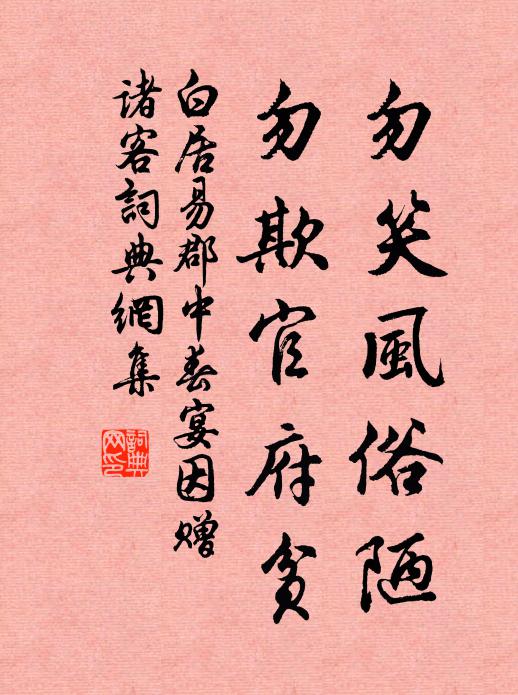 勿笑風俗陋
勿欺官府貧
白居易郡中春宴因贈
諸客詞典網集
詞典
网印